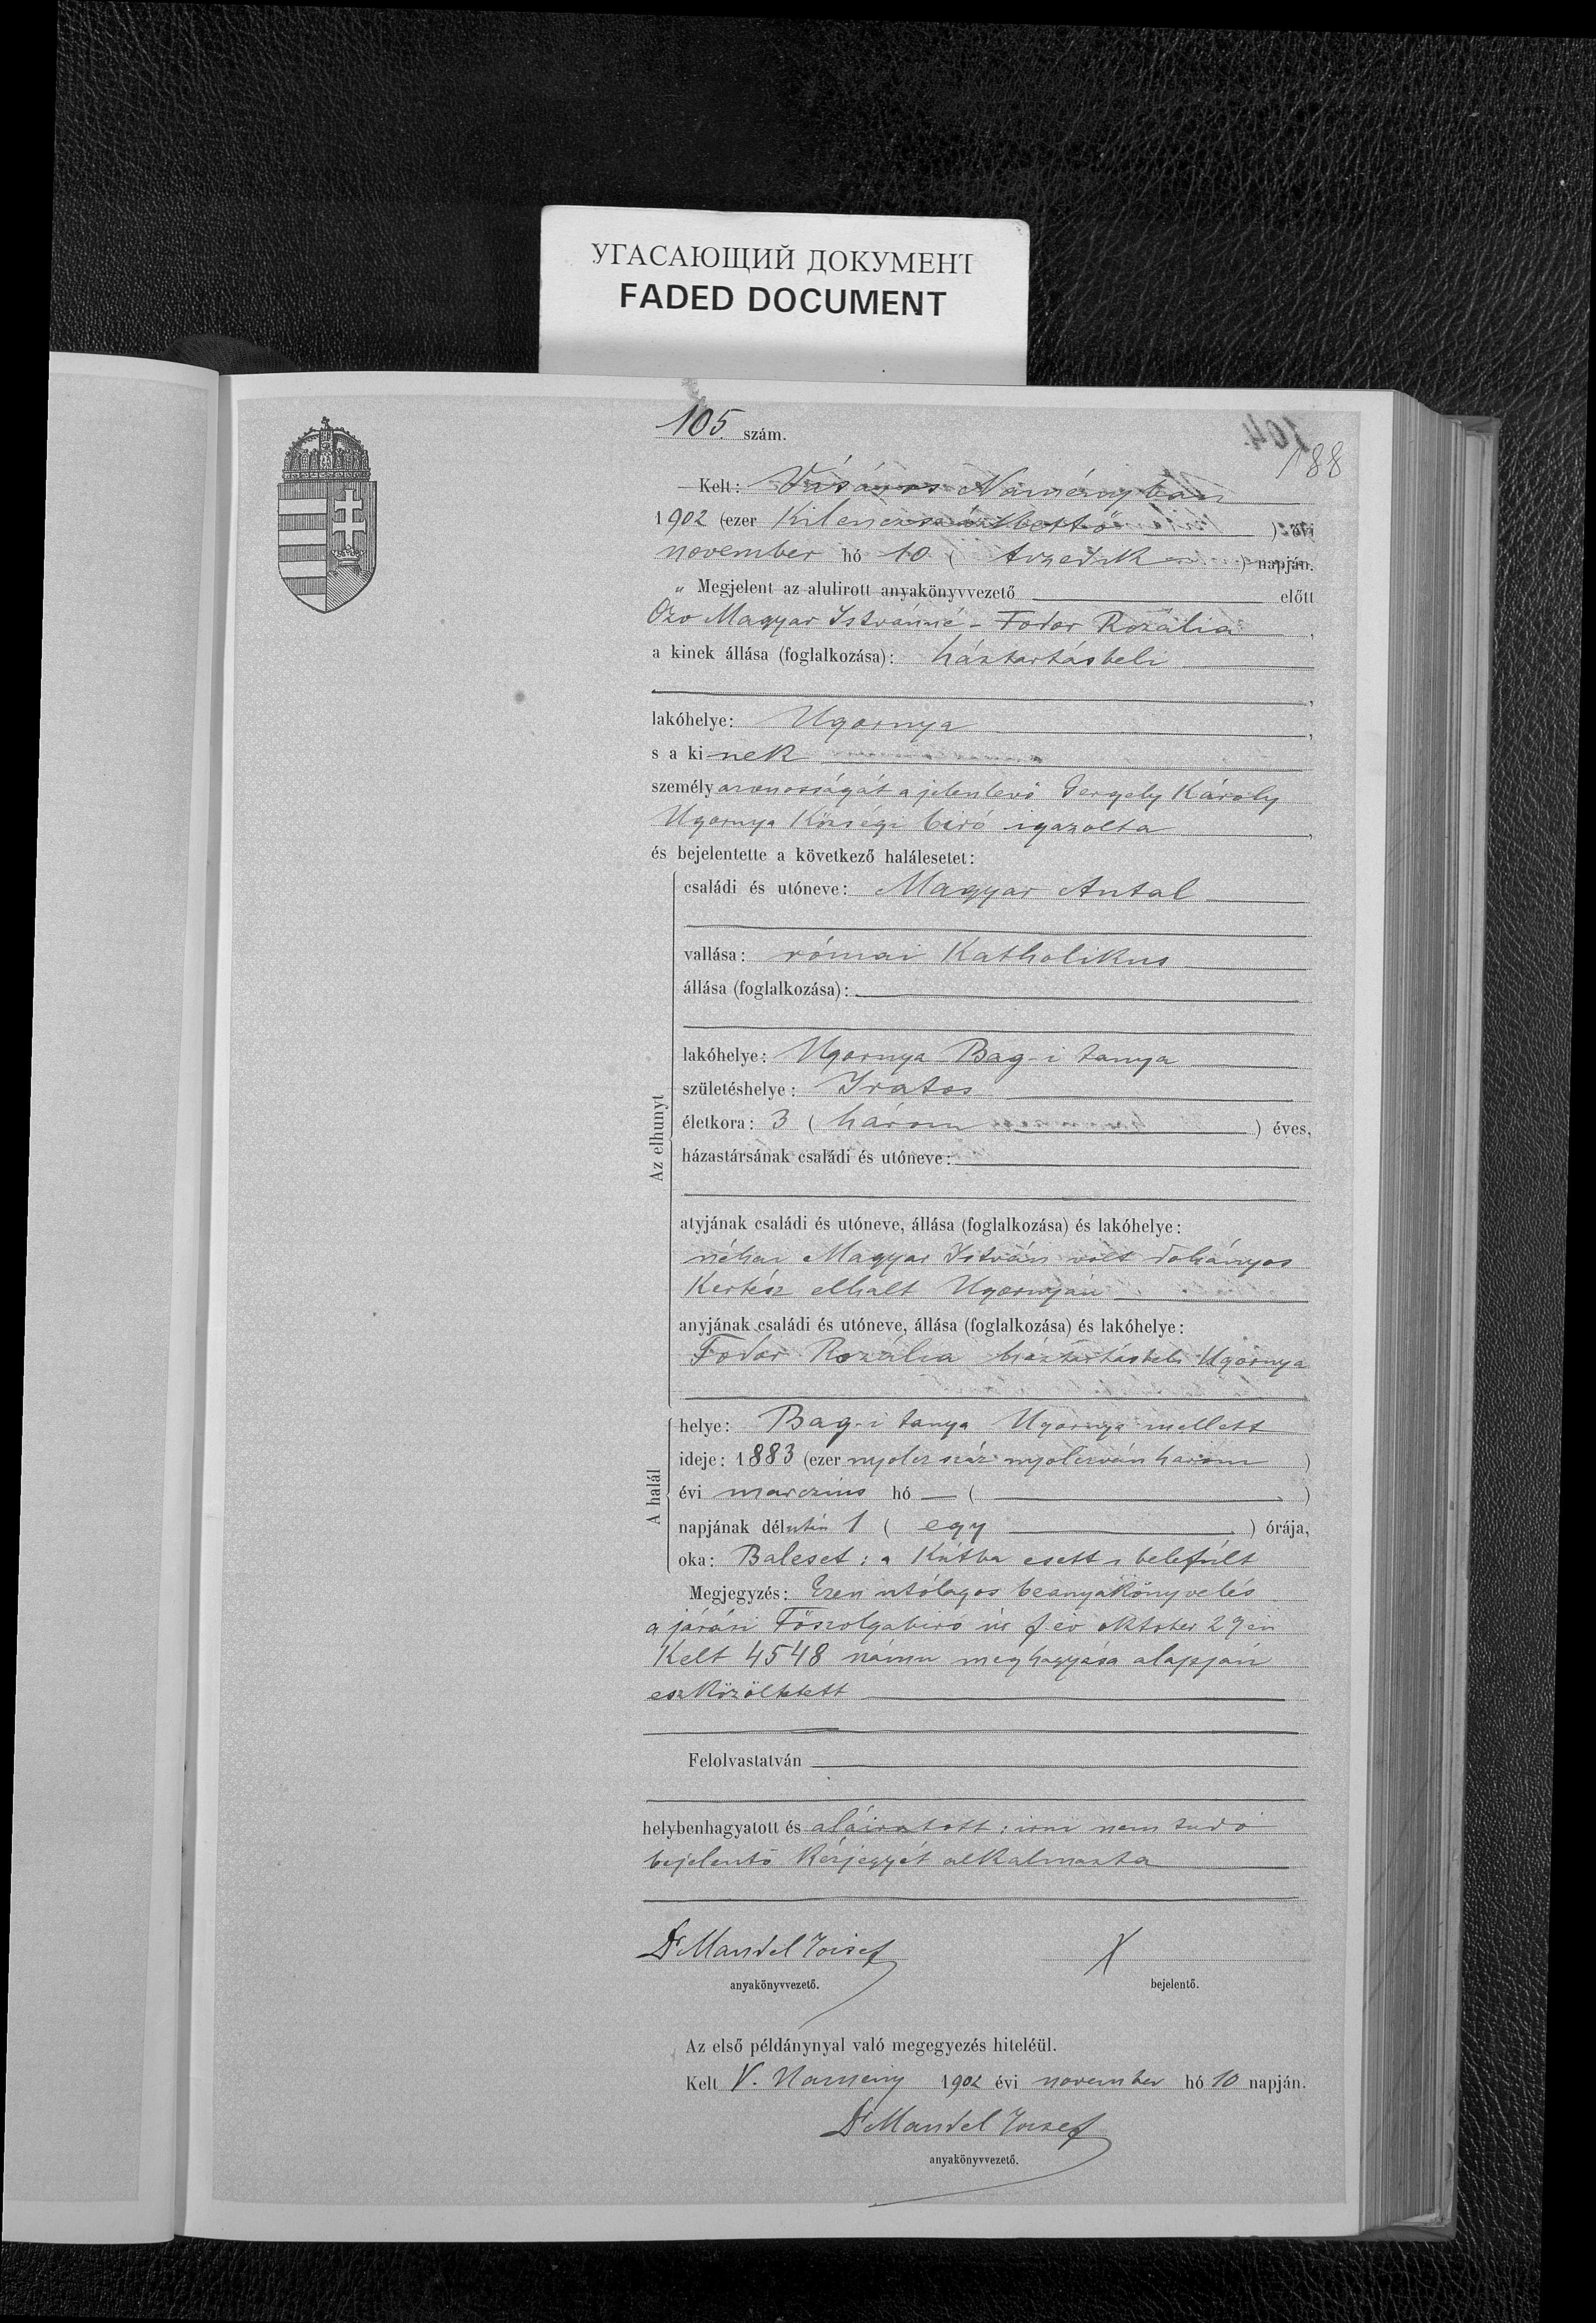 УГАСАЮЩИЙ ДОКУМЕНТ
FADED DOCUMENT
105. szám.
104
188
Kelt: Vásáros Naményban
1902 (ezer Kilenczszáz kettő) évi
november hó 10 (tizedik) napján.
Megjelent az alulirott anyakönyvvezető előtt
Özv Magyar Istvánné - Fodor Rozália,
a kinek állása (foglalkozása): háztartásbeli
lakóhelye: Ugornya,
s a kinek
személyazonosságát a jelenlevő Gergely Károly
Ugornya Községi biró igazolta,
és bejelentette a következő halálesetet:
Az elhunyt
családi és utóneve: Magyar Antal
vallása: római Katholikus
állása (foglalkozása):
lakóhelye: Ugornya Bag-i tanya
születéshelye: Iratos
életkora: 3 (három) éves,
házastársának családi és utóneve:
atyjának családi és utóneve, állása (foglalkozása) és lakóhelye:
néhai Magyar István volt dohányos
Kertész elhalt Ugornyán
anyjának családi és utóneve, állása (foglalkozása) és lakóhelye:
Fodor Rozália háztartásbeli Ugornya
A halál
helye: Bag-i tanya Ugornya mellett
ideje: 1883 (ezer nyolcz száz nyolczván három)
évi marczius hó — ( )
napjának délután 1 (egy) órája,
oka: Baleset: a Kútba esett s belefúlt
Megjegyzés: Ezen utólagos beanyakönyvelés
a járási Főszolgabiró úr f. év oktober 29 én
Kelt 4548 számu meghagyása alapján
eszközöltetett
Felolvastatván
helybenhagyatott és aláiratott: irni nem tudó
bejelentő Kézjegyét alkalmazta
Dr Mandel József
X
anyakönyvvezető.
bejelentő.
Az első példánynyal való megegyezés hiteléül.
Kelt V. Namény 1902 évi november hó 10 napján.
Dr Mandel József
anyakönyvvezető.